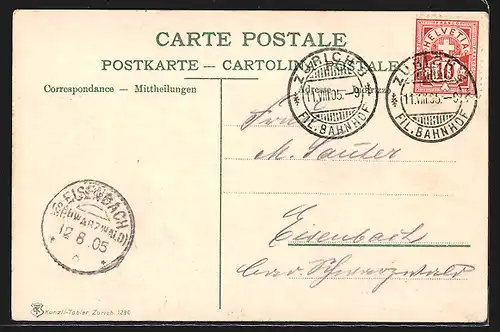 CARTE POSTALE
POSTKARTE — CARTOLINA POSTALE
Correspondance — Mittheilungen
HELVETIA
10
ZÜRICH
11.VIII.05.-9
FIL. BAHNHOF
ZÜRICH
11.VIII.05.-9
FIL. BAHNHOF
M. Sauter
Eisenbach
Schwarzwald
EISENBACH
(SCHWARZWALD)
12 8. 05
Künzli-Tobler, Zürich 1286